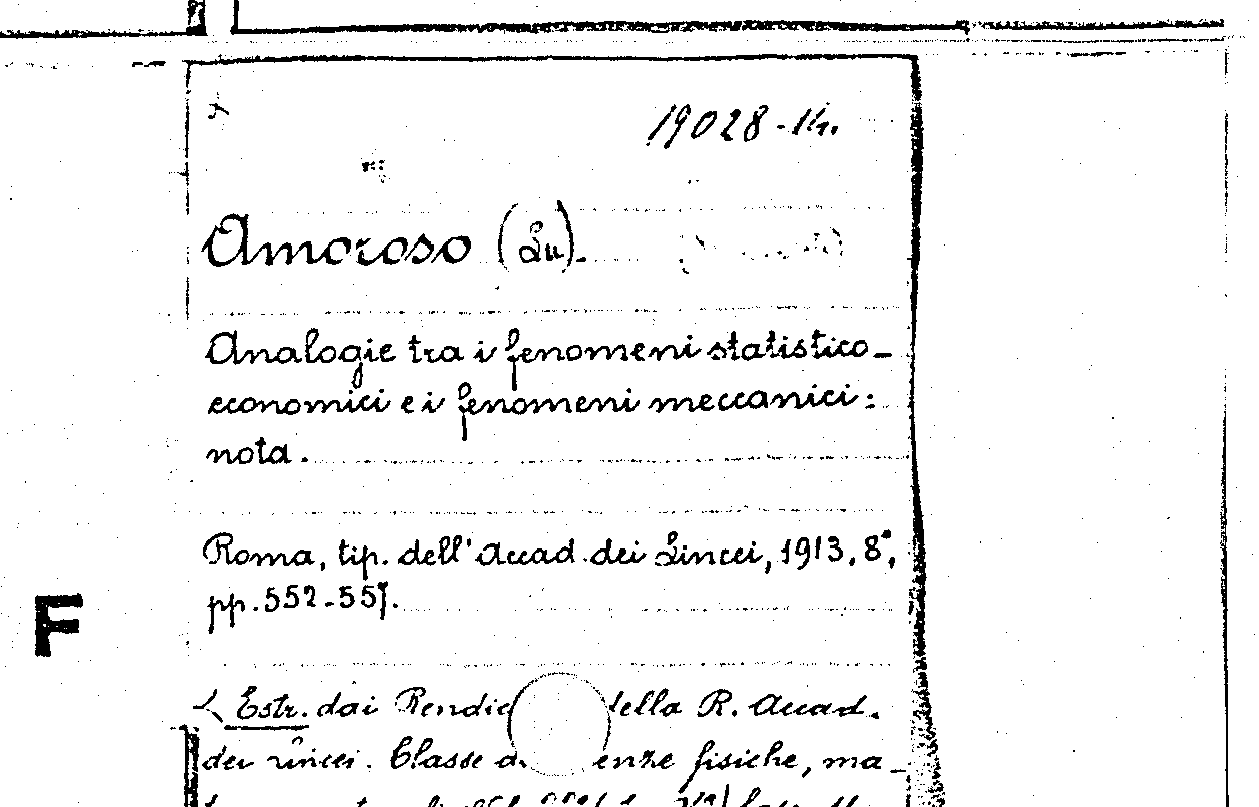 19028-14.
Amoroso (Lu).
Analogie tra i fenomeni statistico-
economici e i fenomeni meccanici:
nota.
Roma, tip. dell'Accad. dei Lincei, 1913, 8°,
pp. 552-557.
F
Estr. dai della R. Accad.
dei Lincei. Classe fisiche, ma-